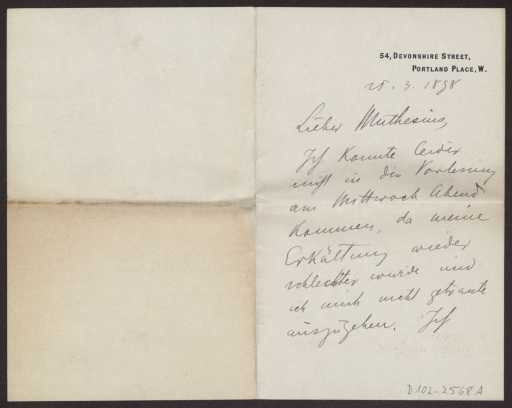 54, DEVONSHIRE STREET,
PORTLAND PLACE, W.
25. 3. 1898
Lieber Muthesius,
Ich konnte leider
nicht in die Vorlesung
am Mittwoch Abend
kommen, da meine
Erkältung wieder
schlechter wurde und
ich mich nicht getraute
auszugehen. Ich
D 102-2568 A